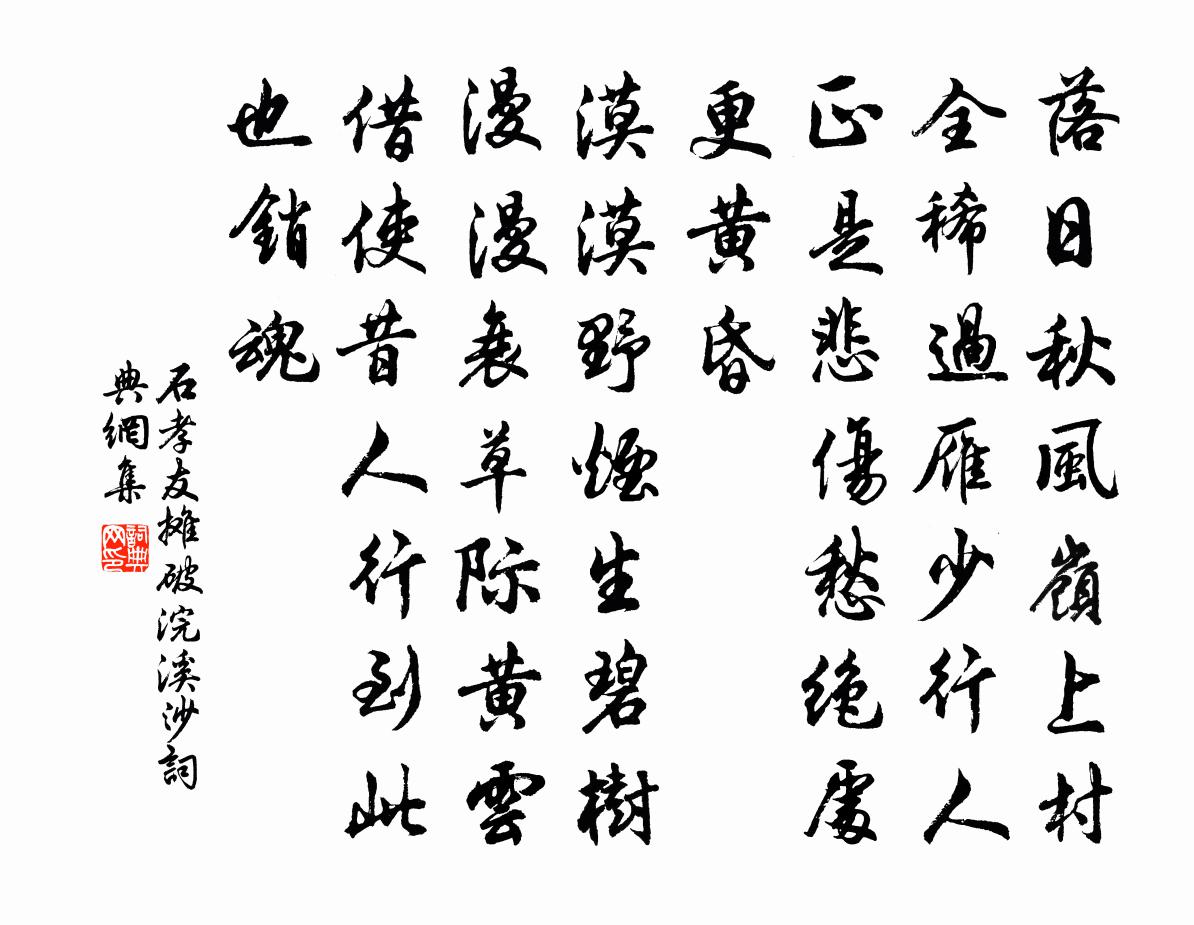 落日秋風嶺上村
全稀過雁少行人
正是悲傷愁絕處
更黃昏
漠漠野煙生碧樹
漫漫衰草際黃雲
借使昔人行到此
也銷魂
石孝友攤破浣溪沙詞
典網集
詞典
网印